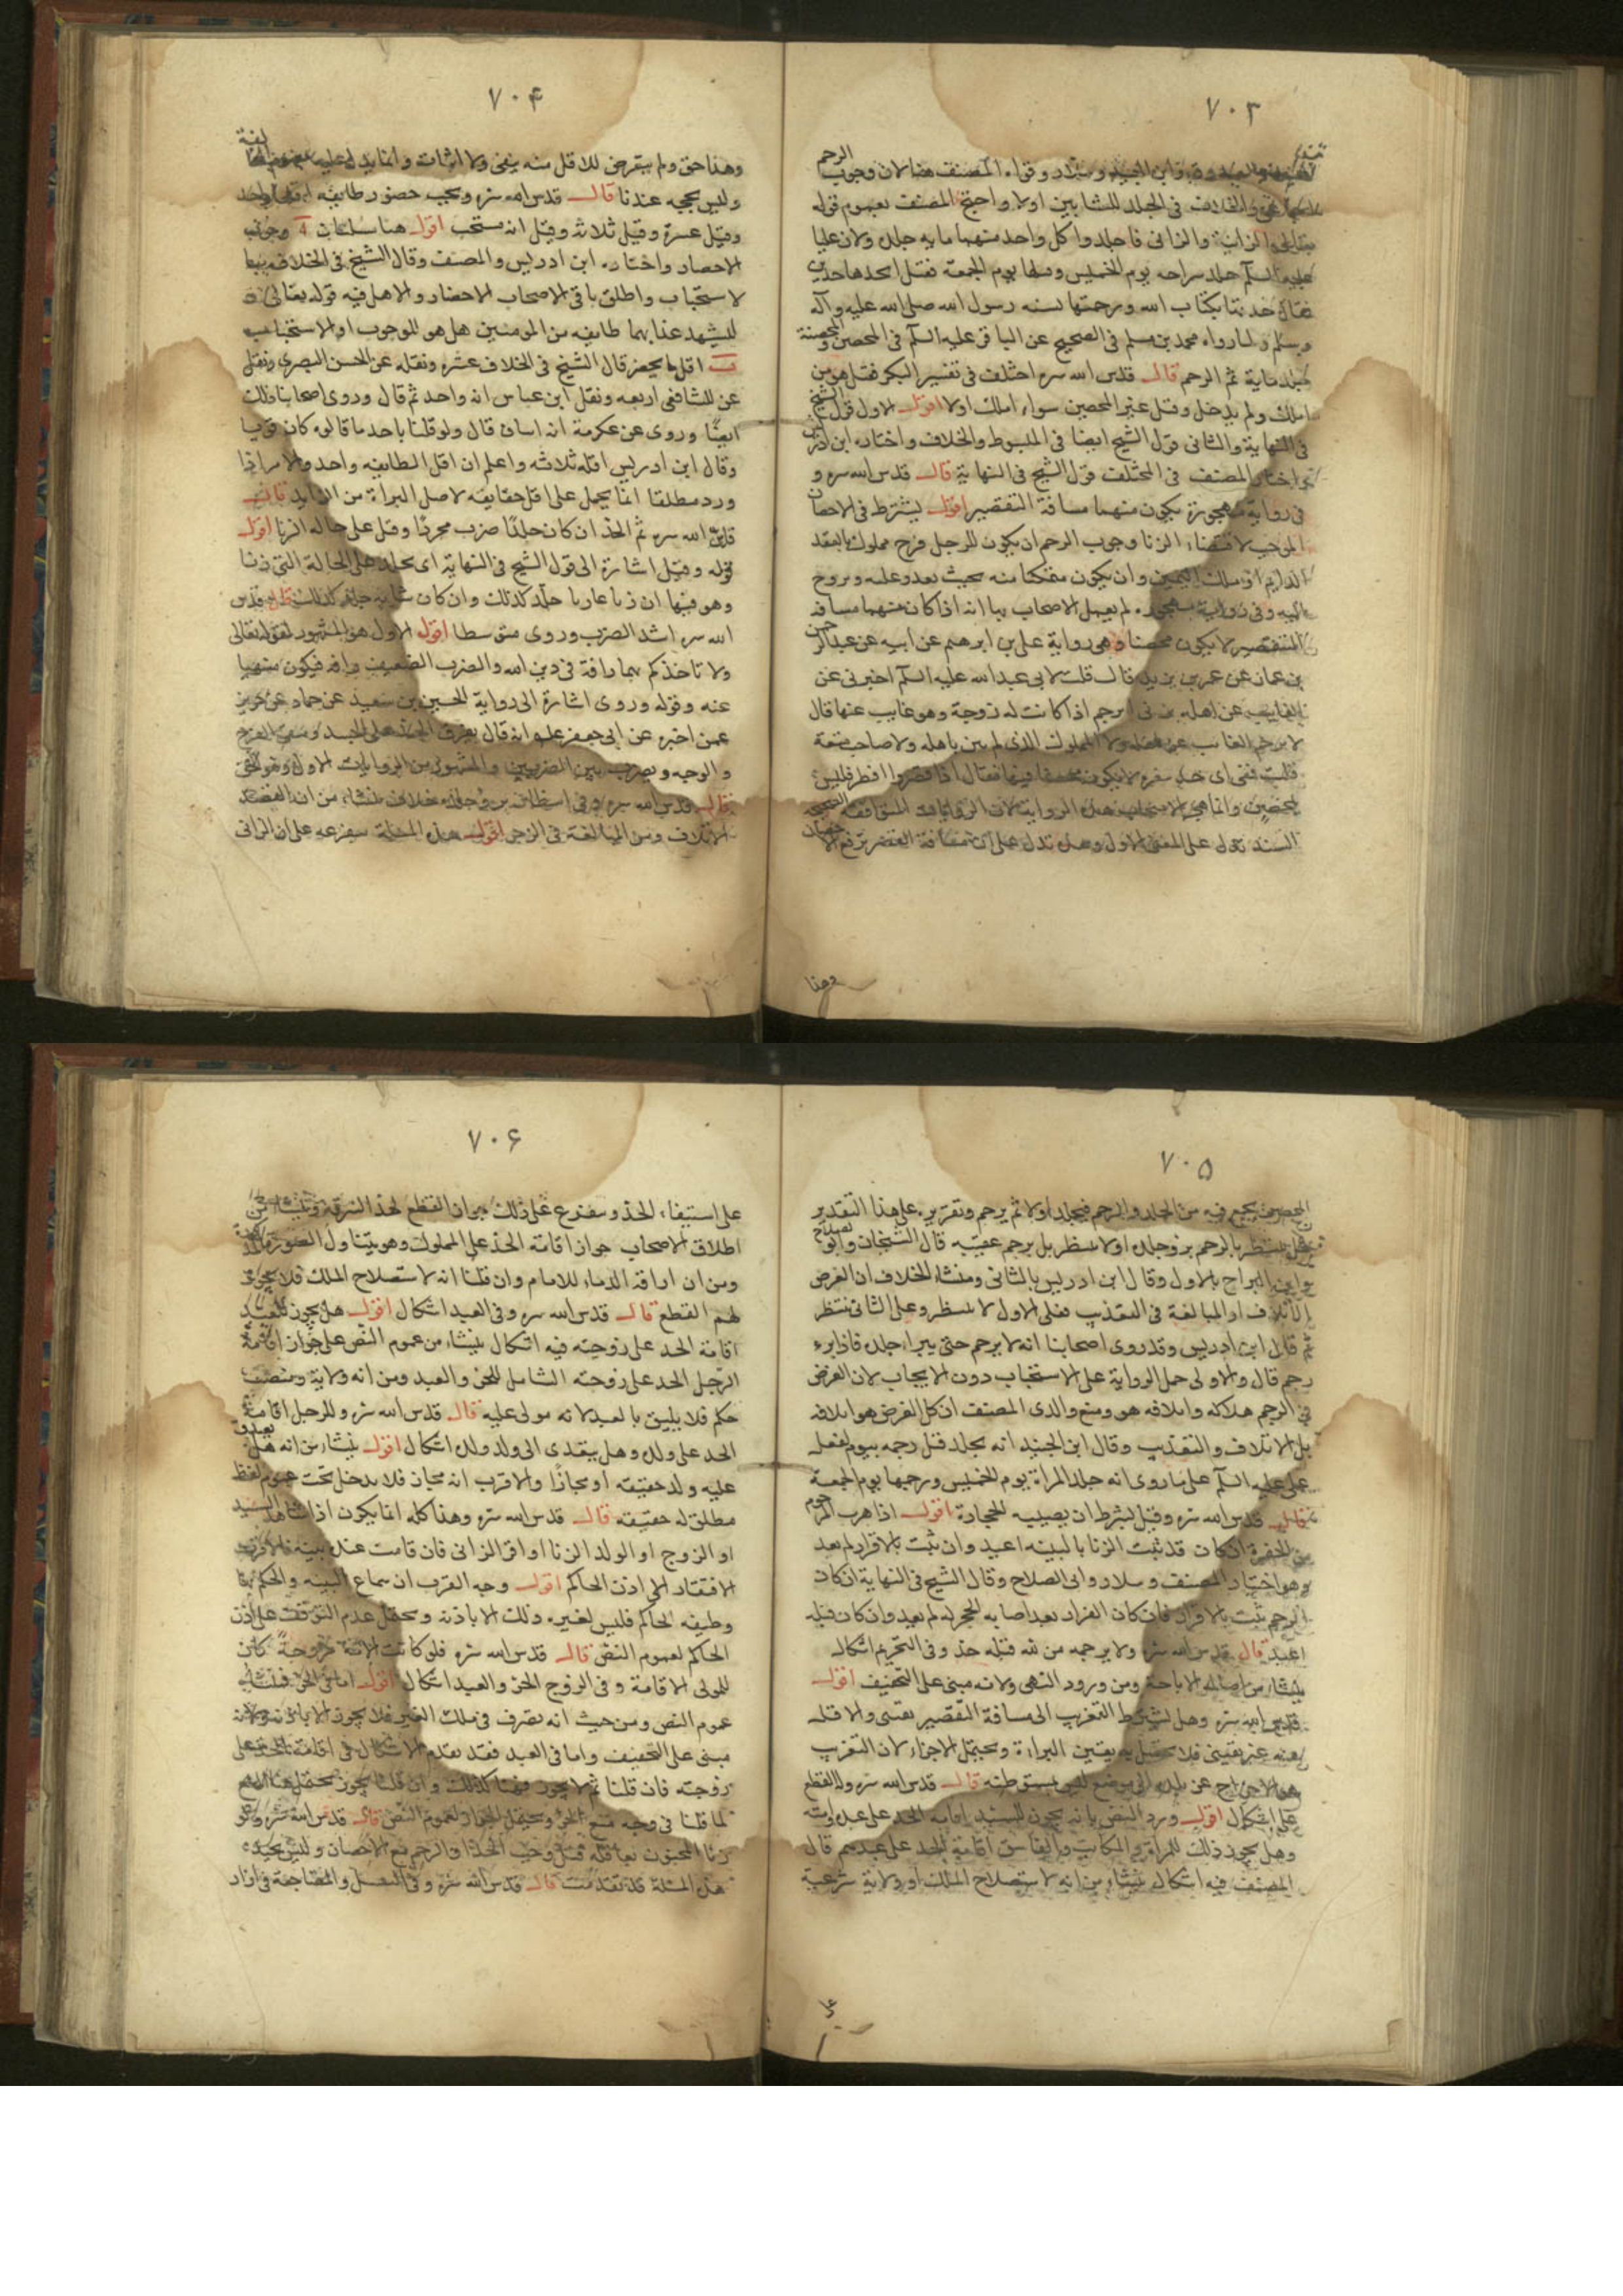 ٧٠٣
الرحم
في الجلد للشابين اولا واحتج المصنف بعموم قوله
الزانية والزاني فاجلدوا كل واحد منهما مايه جلده ولان عليا
عليه السلم جلد سراحه يوم الخميس ورجمها يوم الجمعة فقيل اتحدها حدين
فقال حددتها بكتاب الله ورجمتها بسنه رسول الله صلى الله عليه وآله
وسلم ولما رواه محمد بن مسلم في الصحيح عن الباقر عليه السلم في المحصن والمحصنة
جلد ماية ثم الرجم قال قدس الله سره اختلف في تفسير البكر فقيل هو من
املك ولم يدخل وقيل غير المحصن سواء املك اولا اقول الاول قول الشيخ
في النهاية والثاني قول الشيخ ايضا في المبسوط والخلاف واختاره ابن ادريس
واختار المصنف في المختلف قول الشيخ في النهاية قال قدس الله سره و
في رواية مهجورة يكون منهما مسافة التقصير اقول يشترط في الاحصان
الموجب لاقتضاء الزنا وجوب الرجم ان يكون للرجل فرج مملوك بالعقد
الدايم او ملك اليمين وان يكون متمكنا منه بحيث يغدو عليه ويروح
اليه وفي رواية مهجورة لم يعمل الاصحاب بها انه اذا كان منهما مسافة
التقصير لا يكون محصنا وهي رواية علي بن ابرهيم عن ابيه عن عبد الرحمن
بن عمار عن عمر بن يزيد قال قلت لابي عبد الله عليه السلم اخبرني عن
الغايب عن اهله يزني ايرجم اذا كانت له زوجة وهو غايب عنها قال
لا يرجم الغائب عن اهله ولا المملوك الذي لم يبن باهله ولا صاحب متعة
قلت ففي اي حد سفره لا يكون محصنا فيها فقال اذا قصر وافطر فليس
بمحصن
السند
وهذا
٧٠٤
وهذا حق ولم يتعرض للاقل منه بنفي ولا اثبات وانما يدل عليه
وليس بحجه عندنا قال قدس الله سره ويجب حضور طايفه اقلها واحد
وقيل عشرة وقيل ثلاثة وقيل انه مستحب اقول هنا مسئلتان آ وجوب
الاحضار واختاره ابن ادريس والمصنف وقال الشيخ في الخلاف
لاستحباب واطلق باقي الاصحاب الاحضار والاصل فيه قوله تعالى
ليشهد عذابهما طايفه من المومنين هل هو للوجوب او الاستحباب
ب اقل ما يحضر قال الشيخ في الخلاف عشره ونقله عن الحسن البصري ونقل
عن الشافعي اربعه ونقل ابن عباس انه واحد ثم قال وروى اصحابنا ذلك
ايضا وروي عن عكرمة انه اثنان قال ولو قلنا باحد ما قالوه كان قويا
وقال ابن ادريس اقله ثلاثه واعلم ان اقل الطايفه واحد والامر اذا
ورد مطلقا انما يحمل على اقل حقايقه لاصل البراة من الزايد قال
قدس الله سره ثم الحد ان كان جلدا ضرب مجردا وقيل على حاله الزنا اقول
قوله وقيل اشارة الى قول الشيخ في النهاية اي يجلد على الحالة التي زنا
وهو فيها ان زنا عاريا جلد كذلك وان كان بثيابه جلد كذلك قال قدس
الله سره اشد الضرب وروي متوسطا اقول الاول هو المشهور لقوله تعالى
ولا تاخذكم بهما رافة في دين الله والضرب الضعيف رافه فيكون منهيا
عنه وقوله وروي اشارة الى رواية الحسين بن سعيد عن حماد عن حريز
عمن اخبره عن ابي جعفر عليه انه قال يفرق الحد على الجسد
والوجه ويضرب بين الضربين والمشهور من الروايات الاول
قال قدس الله سره
الاتلاف ومن المبالغة في الزجر اقول هذه المسئلة متفرعه على ان الزاني
٧٠٥
المحصن يجمع فيه من الجلد والرجم فيجلد اولا ثم يرجم وتقريره على هذا التقدير
بالرجم برء جلده اولا ينتظر بل يرجم عقيبه قال الشيخان وابو الصلاح
وابن البراج بالاول وقال ابن ادريس بالثاني ومنشاء الخلاف ان الغرض
الاتلاف او المبالغة في التعذيب فعلى الاول لا ينتظر وعلى الثاني ينتظر
ثم قال ابن ادريس وقد روى اصحابنا انه لا يرجم حتى يبراء جلده فاذا برء
رجم قال والاولى حمل الرواية على الاستحباب دون الايجاب لان الغرض
في الرجم هلاكه واتلافه هو ومنع والدي المصنف ان كل الغرض هو اتلافه
بل الاتلاف والتعذيب وقال ابن الجنيد انه يجلد قبل رجمه بيوم لفعل
علي عليه السلم على ما روي انه جلد المراة يوم الخميس ورجمها يوم الجمعة
قال قدس الله سره وقيل يشرط ان يصيبه الحجارة اقول اذا هرب المرجوم
من الحفرة ان كان قد ثبت الزنا بالبينه اعيد وان ثبت بالاقرار لم يعد
وهو اختيار المصنف وسلار وابي الصلاح وقال الشيخ في النهاية ان كان
الرجم ثبت بالاقرار فان كان الفرار بعد اصابه الحجر له لم يعد وان كان قبله
اعيد قال قدس الله سره ولا يرجمه من لله قبله حد وفي التحريم اشكال
ينشاء من اصاله الاباحة ومن ورود النهي ولانه مبني على التخفيف اقول
قدس الله سره وهل يشرط التغريب الى مسافة التقصير
يقيني فلا يحصل به يقين البراءة ويحتمل الاجزاء لان التغريب
هو الاخراج عن بلده الى موضع ليس يستوطنه قال قدس الله سره وله القطع
على اشكال اقول ورد النص بانه يجوز للسيد اقامه الحد على عبده وامته
وهل يجوز ذلك للمراة والمكاتب والفاسق اقامة الحد على عبدهم قال
المصنف فيه اشكال ينشاء من انه لاستصلاح الملك او ولاية شرعية
على
٧٠٦
على استيفاء الحد ويتفرع على ذلك جواز القطع لحد السرقه
اطلاق الاصحاب جواز اقامة الحد على المملوك وهو يتناول الصورة
ومن ان اراقة الدماء للامام وان قلنا انه لاستصلاح الملك فلا يجوز
لهم القطع قال قدس الله سره وفي العبد اشكال اقول هل يجوز للعبد
اقامة الحد على زوجته فيه اشكال ينشاء من عموم النص على جواز اقامة
الرجل الحد على زوجته الشامل للحر والعبد ومن انه ولاية ومنصب
حكم فلا يليق بالعبد لانه مولى عليه قال قدس الله سره وللرجل اقامة
الحد على ولده وهل يتعدى الى ولد ولده اشكال اقول ينشاء من انه هل يصدق
عليه ولد حقيقه او مجازا والاقرب انه مجاز فلا يدخل تحت عموم لفظ
مطلق له حقيقه قال قدس الله سره وهذا كله انما يكون اذا شاهد السيد
او الزوج او الوالد الزنا او اقر الزاني فان قامت عنده بينة فالاقرب
الافتقار الى اذن الحاكم اقول وجه القرب ان سماع البينه والحكم بها
وظيفه الحاكم فليس لغيره ذلك الا باذنه ويحتمل عدم التوقف على اذن
الحاكم لعموم النص قال قدس الله سره فلو كانت الامة مزوجة كان
للمولى الاقامة وفي الزوج الحر والعبد اشكال اقول اما في الحر فينشاء
عموم النص ومن حيث انه تصرف في ملك الغير فلا يجوز الا باذنه ولانه
مبني على التخفيف واما في العبد فقد تقدم الاشكال في اقامة الحد على
زوجته فان قلنا ثم لا يجوز فهنا كذلك وان قلنا يجوز يحتمل هنا المنع
لما قلنا في وجه منع الحر ويحتمل الجواز لعموم النص قال قدس الله سره ولو
زنا المجنون بعاقلة قيل وجب الحد او الرجم مع الاحصان وليس بجيد
هذه المسئلة قد تقدمت قال قدس الله سره وفي التقبيل والمضاجعة في ازار